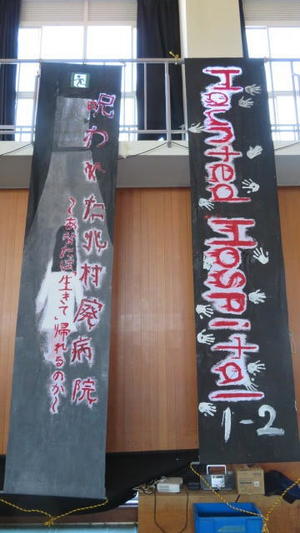 呪われた北村廃病院
〜あなたは「生きて」帰れるのか〜
Haunted Hospital
1-2